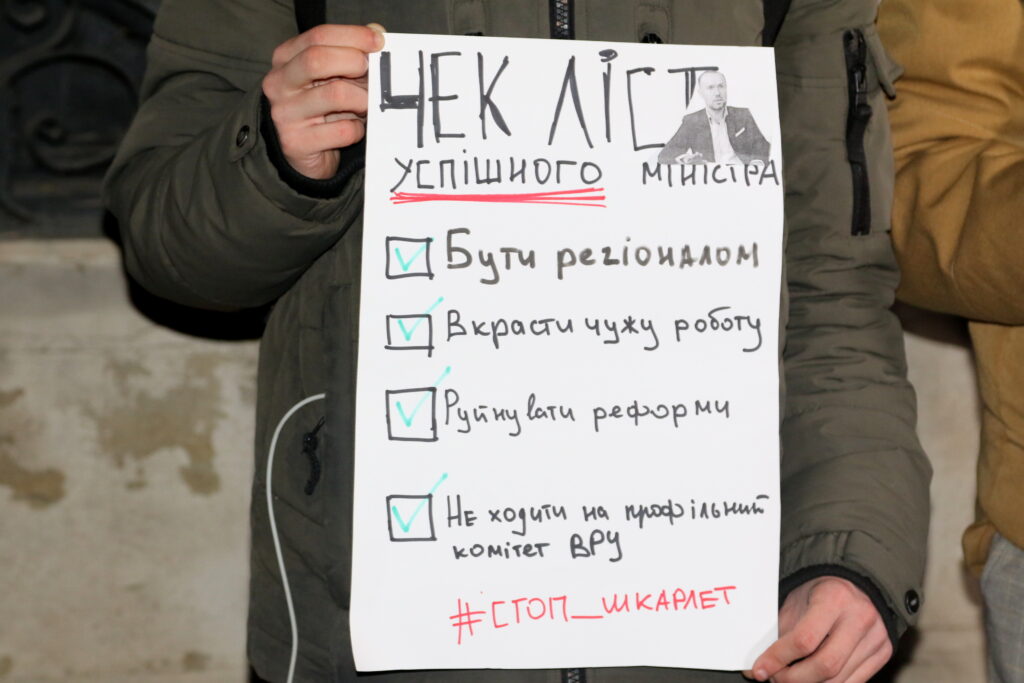 ЧЕК ЛІСТ
УСПІШНОГО МІНІСТРА
Бути регіоналом
Вкрасти чужу роботу
Руйнувати реформи
Не ходити на профільний
комітет ВРУ
#СТОП_ШКАРЛЕТ